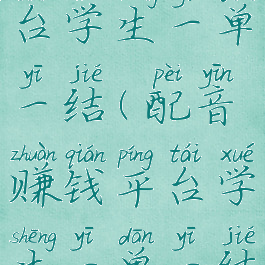 台学生一单
yī jié pèi yīn
一结(配音
zhuàn qián píng tái xué
赚钱平台学
shēng yī dān yī jié